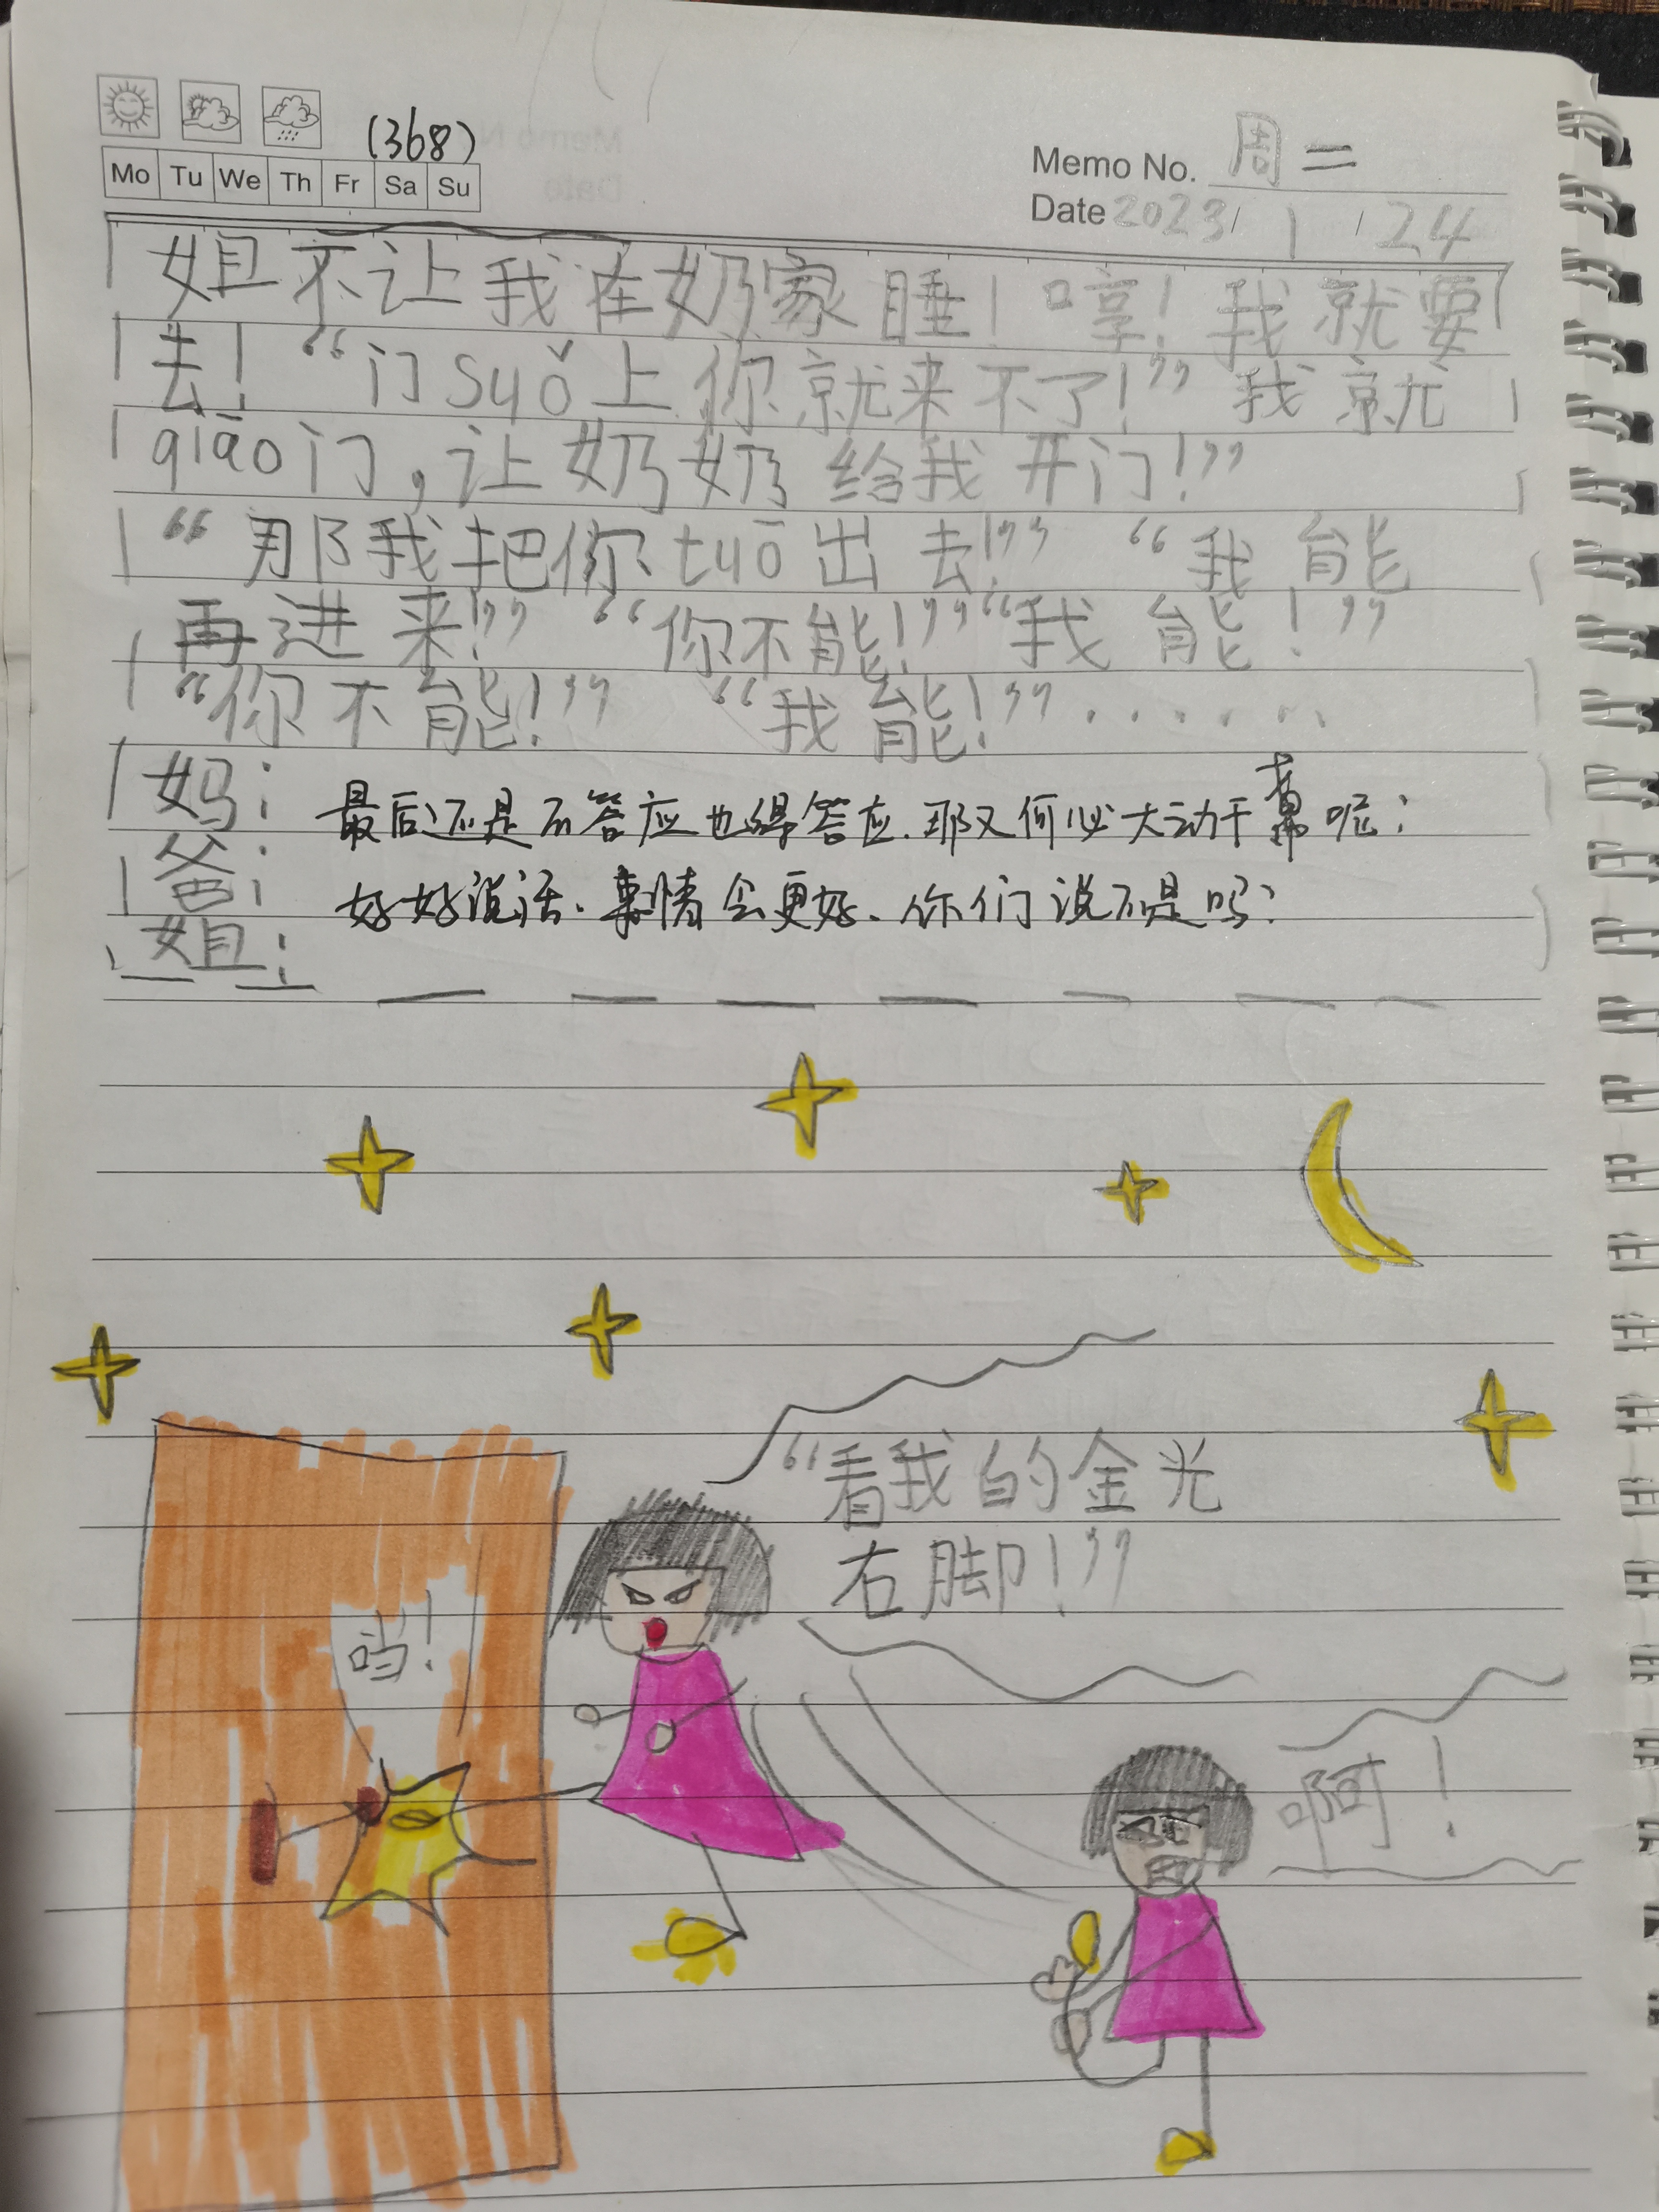 (368)
Mo Tu We Th Fr Sa Su
Memo No. 周二
Date 2023/1/24
姐不让我在奶家睡！哼！我就要
去！“门suǒ上你就来不了！”我就
qiāo门，让奶奶给我开门！”
“那我把你tuō出去！”“我能
再进来！”“你不能！”“我能！”
“你不能！”“我能！”......
妈：最后还是不答应也得答应.那又何必大动干
爸：好好说话.事情会更好.你们说不是吗？
姐：
“看我的金光
右脚！”
当！
啊！